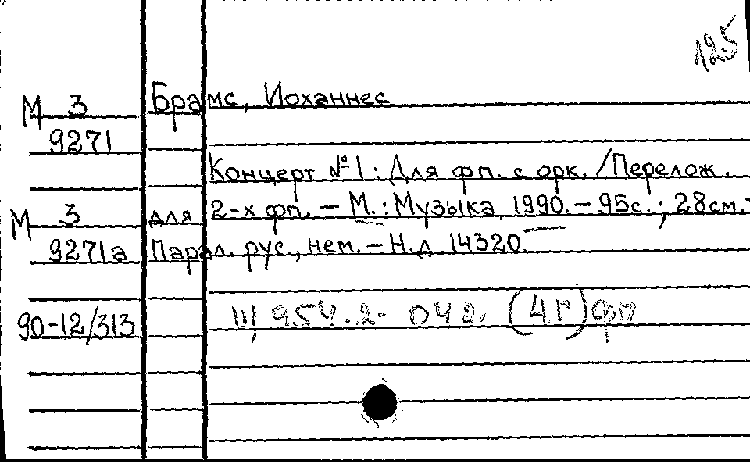 125
М 3 Брамс, Иоханнес
9271
Концерт №1: Для фп. с орк. /Перелож.
М 3 для 2-х фп. – М.: Музыка, 1990. – 95с.; 28см. –
9271а Парал. рус., нем. – Н.д 14320.
90-12/313 Щ 954.2- 042. (4Г)фп